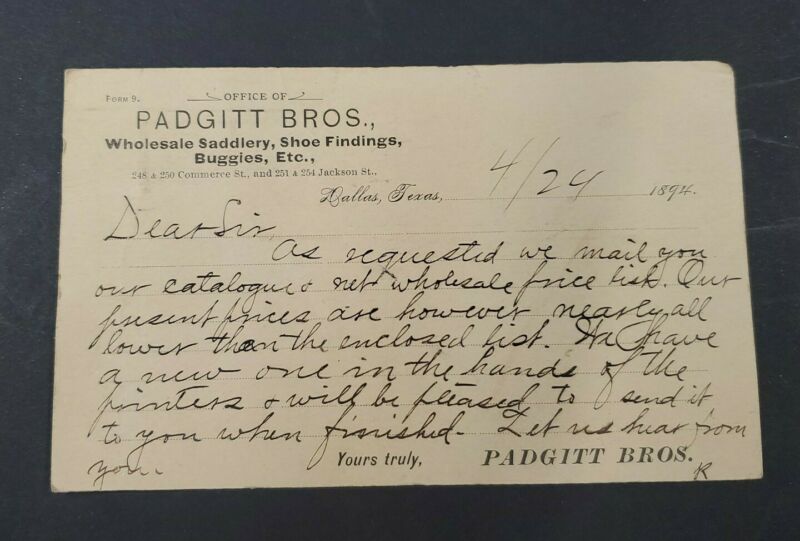 Form 9.
OFFICE OF
PADGITT BROS.,
Wholesale Saddlery, Shoe Findings,
Buggies, Etc.,
248 & 250 Commerce St., and 251 & 254 Jackson St..
Dallas, Texas, 4/24 1894.
Dear Sir,
As requested we mail you
our catalogue & net wholesale price list. Our
present prices are however nearly all
lower than the enclosed list. We have
a new one in the hands of the
printers & will be pleased to send it
to you when finished. Let us hear from
you.
Yours truly, PADGITT BROS.
R